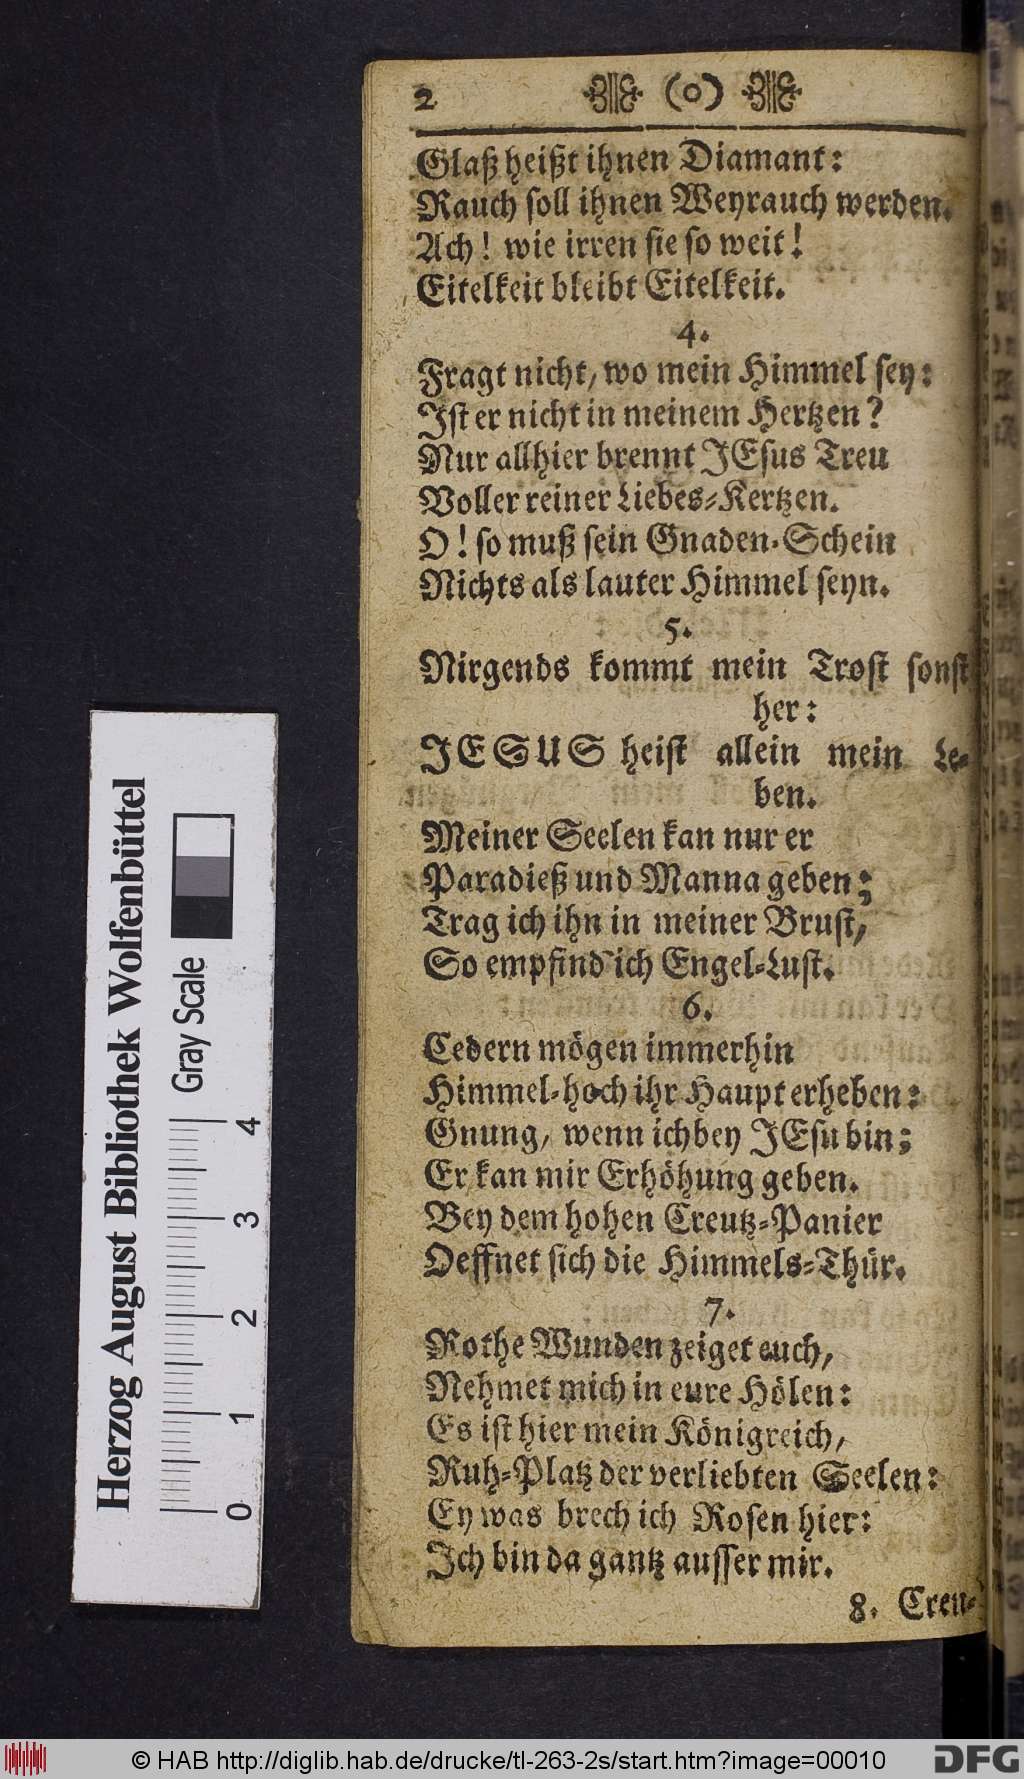 2 (o)
Glaß heißt ihnen Diamant:
Rauch soll ihnen Weyrauch werden.
Ach! wie irren sie so weit!
Eitelkeit bleibt Eitelkeit.
4.
Fragt nicht, wo mein Himmel sey:
Ist er nicht in meinem Hertzen?
Nur allhier brennt JEsus Treu
Voller reiner Liebes-Kertzen.
O! so muß sein Gnaden-Schein
Nichts als lauter Himmel seyn.
5.
Nirgends kommt mein Trost sonst
her:
JESUS heist allein mein Le-
ben.
Meiner Seelen kan nur er
Paradieß und Manna geben;
Trag ich ihn in meiner Brust,
So empfind ich Engel-Lust.
6.
Cedern mögen immerhin
Himmel-hoch ihr Haupt erheben:
Gnung, wenn ich bey JEsu bin;
Er kan mir Erhöhung geben.
Bey dem hohen Creutz-Panier
Oeffnet sich die Himmels-Thür.
7.
Rothe Wunden zeiget euch,
Nehmet mich in eure Hölen:
Es ist hier mein Königreich,
Ruh-Platz der verliebten Seelen:
Ey was brech ich Rosen hier:
Ich bin da gantz ausser mir.
8. Creu-
Herzog August Bibliothek Wolfenbüttel
Gray Scale
0 1 2 3 4
© HAB http://diglib.hab.de/drucke/tl-263-2s/start.htm?image=00010
DFG